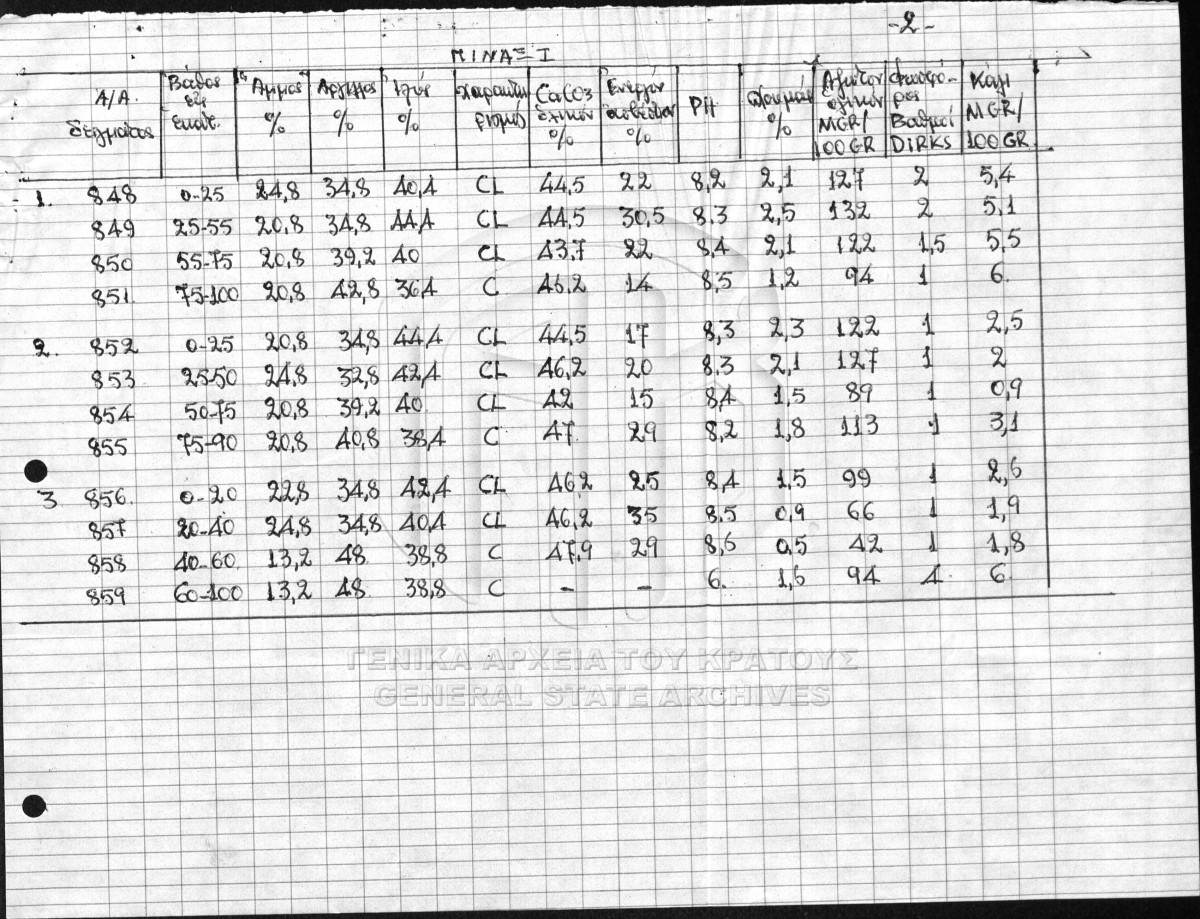 -2-
ΠΙΝΑΞ I
Α/Α. δείγματος | Βάθος εἰς ἑκατ. | Ἄμμος % | Ἄργιλλος % | Ἰλύς % | Χαρακτηρισμός | CaCO3 ὁλικόν % | Ἐνεργόν ἀσβέστιον % | PH | % | Ἄζωτον ὁλικόν MGR/100GR | Φωσφόρος Βαθμοί DIRKS | Κάλι MGR/100GR
1. 848 0-25 24,8 34,8 40,4 CL 44,5 22 8,2 2,1 127 2 5,4
849 25-55 20,8 34,8 44,4 CL 44,5 30,5 8,3 2,5 132 2 5,1
850 55-75 20,8 39,2 40 CL 43,7 22 8,4 2,1 122 1,5 5,5
851 75-100 20,8 42,8 36,4 C 46,2 14 8,5 1,2 94 1 6
2. 852 0-25 20,8 34,8 44,4 CL 44,5 17 8,3 2,3 122 1 2,5
853 25-50 24,8 32,8 42,4 CL 46,2 20 8,3 2,1 127 1 2
854 50-75 20,8 39,2 40 CL 42 15 8,4 1,5 89 1 0,9
855 75-90 20,8 40,8 38,4 C 47 29 8,2 1,8 113 1 3,1
3 856 0-20 22,8 34,8 42,4 CL 46,2 25 8,4 1,5 99 1 2,6
857 20-40 24,8 34,8 40,4 CL 46,2 35 8,5 0,9 66 1 1,9
858 40-60 13,2 48 38,8 C 47,9 29 8,6 0,5 42 1 1,8
859 60-100 13,2 48 38,8 C - - 6. 1,6 94 4 6
ΓΕΝΙΚΑ ΑΡΧΕΙΑ ΤΟΥ ΚΡΑΤΟΥΣ
GENERAL STATE ARCHIVES